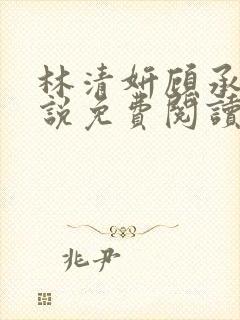 林清妍顾承
說免費閱讀
兆尹